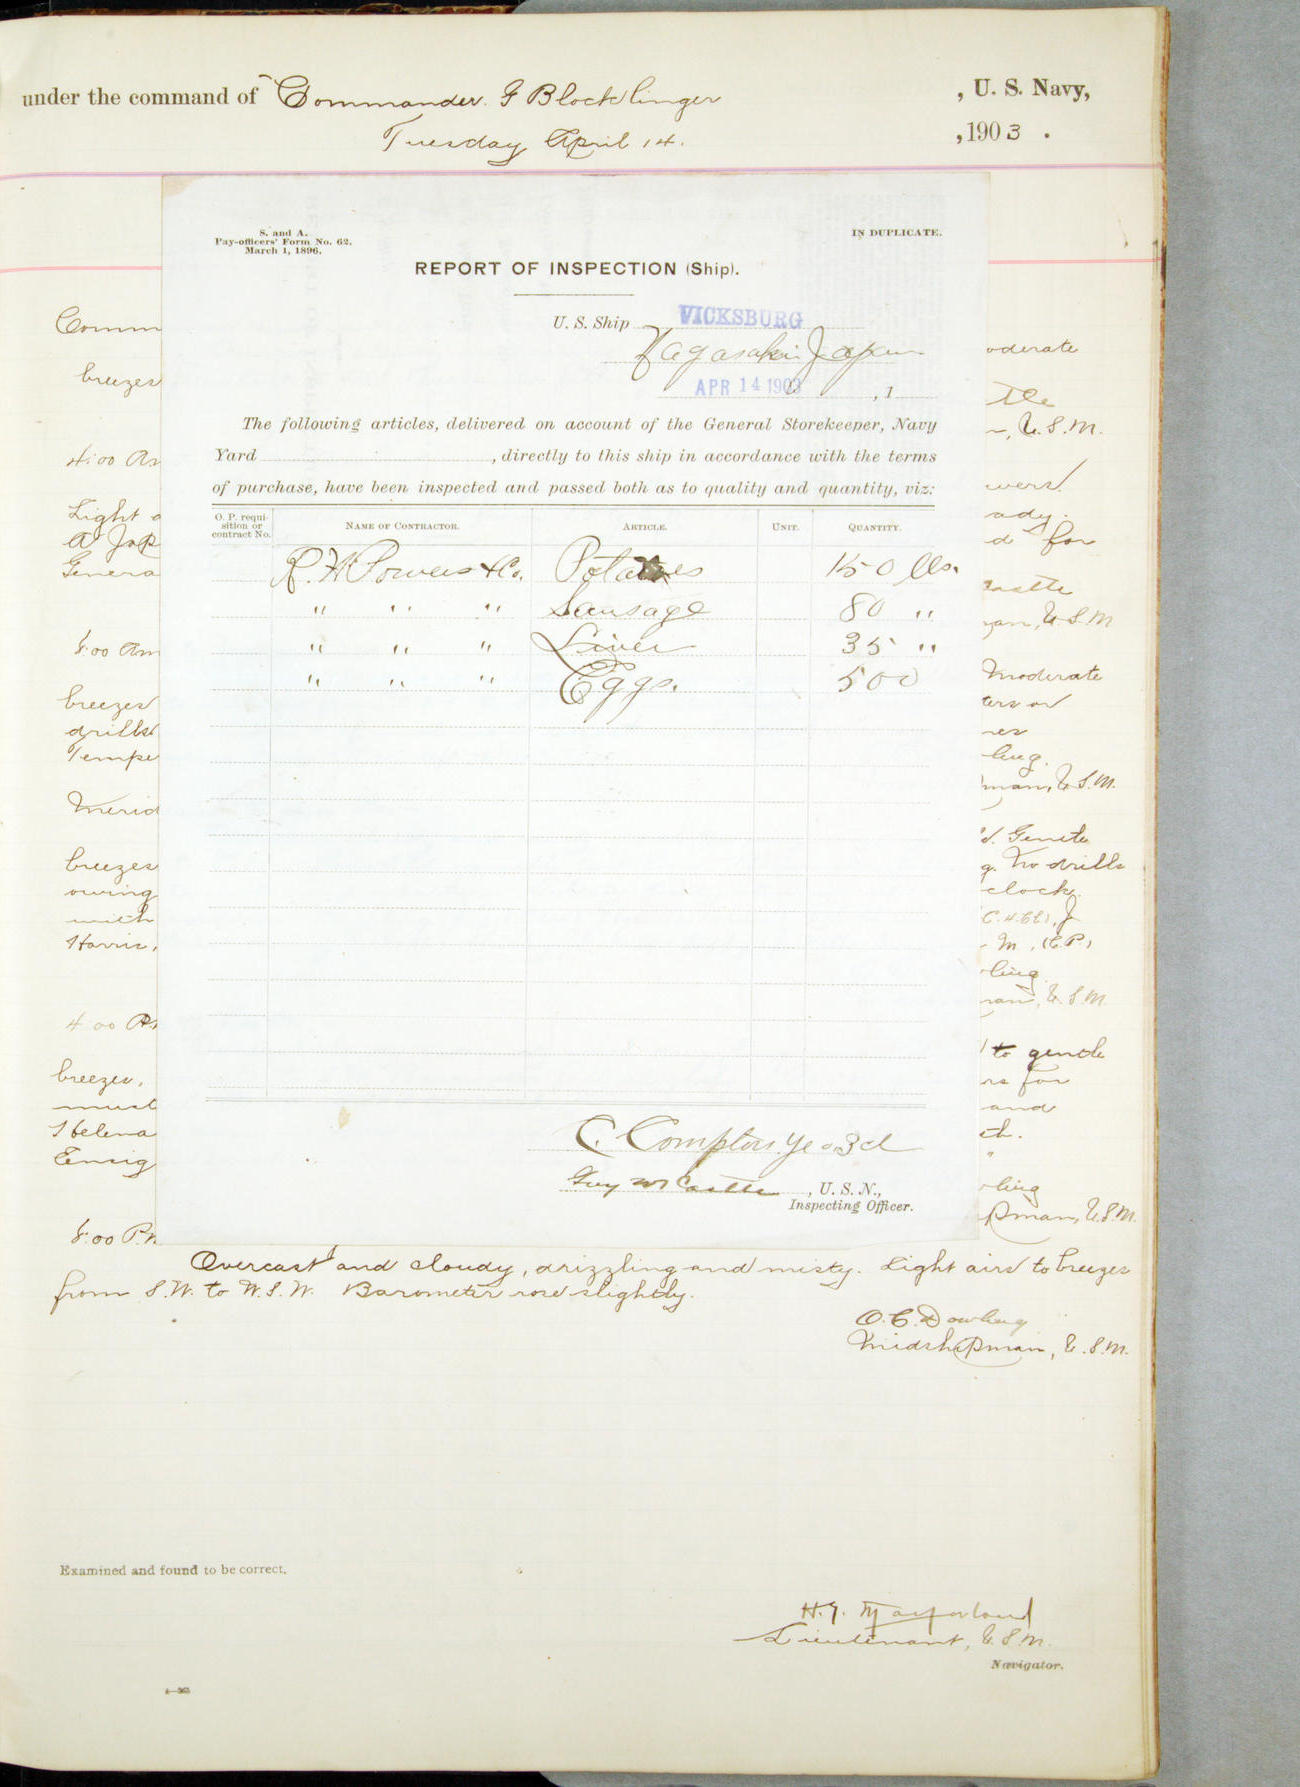 under the command of Commander G Blocklinger , U. S. Navy,
Tuesday April 14. ,1903 .
S. and A.
Pay-officers' Form No. 62.
March 1, 1896.
IN DUPLICATE.
REPORT OF INSPECTION (Ship).
U. S. Ship VICKSBURG
Nagasaki Japan
APR 14 1903 , 1
The following articles, delivered on account of the General Storekeeper, Navy
Yard , directly to this ship in accordance with the terms
of purchase, have been inspected and passed both as to quality and quantity, viz:
O. P. requisition or contract No. NAME OF CONTRACTOR. ARTICLE. UNIT. QUANTITY.
R. H. Powers & Co. Potatoes 150 lbs.
" " " Sausage 80 "
" " " Liver 35 "
" " " Eggs. 500
C. Compton Yeo 3d
Guy W Castle , U. S. N.,
Inspecting Officer.
Comm
oderate
breezes
tle
, U.S.N.
4:00 Am
Light
ady.
A Jap
d for
Genera
castle
man, U.S.N
8:00 Am
Moderate
breezes
ters on
drills
Tempe
ling.
man, U.S.N.
Merid
Gentle
breezes
g. No drills
owing
clock.
with
Harris,
M. (C.P.)
ling
man, U.S.N.
4:00
to gentle
breezes,
rs for
must
and
Helena
ch.
Ensig
ling
pman, U.S.N.
8:00 P.M
Overcast and cloudy, drizzling and misty. Light airs to breezes
from S.W. to W.S.W. Barometer rose slightly.
O.C. Dowling
Midshipman, U.S.N.
Examined and found to be correct.
H.G. Macfarland
Lieutenant, U.S.N.
Navigator.